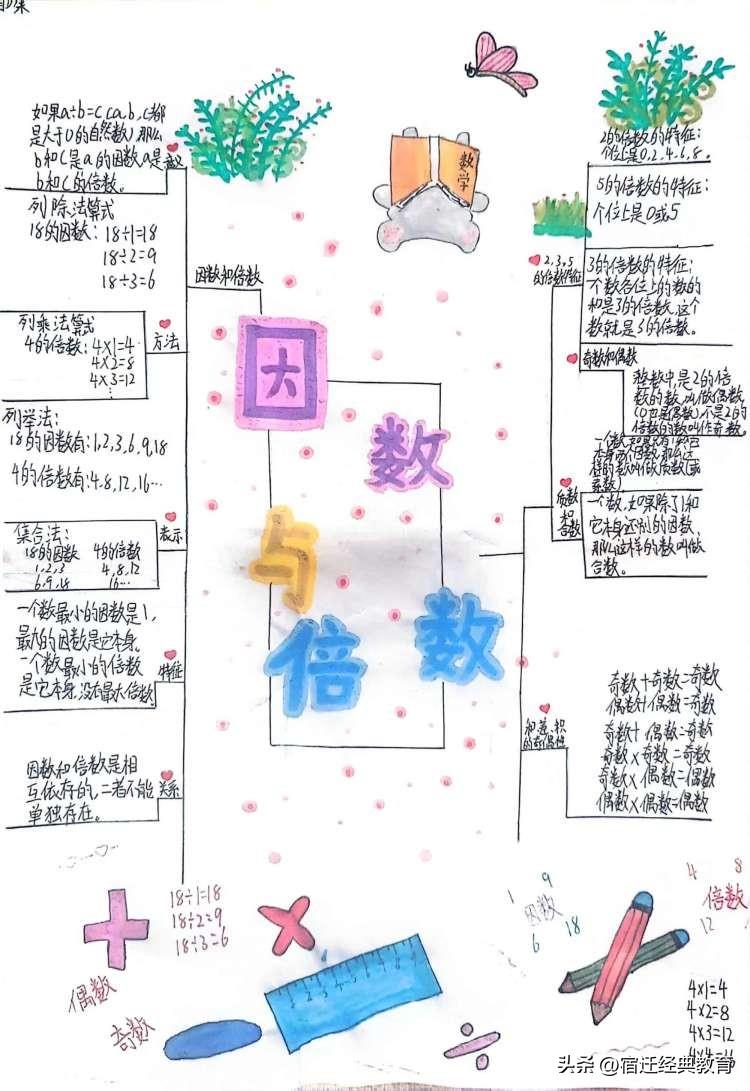 如果a÷b=c(a,b,c都
是大于0的自然数)那么
b和c是a的因数,a是
b和c的倍数。
列除法算式
18的因数:18÷1=18
18÷2=9
18÷3=6
因数和倍数
列乘法算式
4的倍数:4×1=4
4×2=8
4×3=12
方法
列举法:
18的因数有:1,2,3,6,9,18
4的倍数有:4,8,12,16…
表示
集合法:
18的因数 4的倍数
1,2,3 4,8,12
6,9,18 16…
一个数最小的因数是1,
最大的因数是它本身。
一个数最小的倍数
是它本身,没有最大倍数
特征
因数和倍数是相
互依存的,二者不能
单独存在。
关系
数学
因
数
与
倍
数
2的倍数的特征:
个位上是0,2,4,6,8。
5的倍数的特征:
个位上是0或5
2,3,5
的倍数特征
3的倍数的特征:
个数各位上的数的
和是3的倍数,这个
数就是3的倍数。
奇数和偶数
整数中,是2的倍
数的数叫做偶数
(0也是偶数),不是2的
倍数的数叫作奇数。
一个数,如果只有1和它
本身两个因数,那么这
样的数叫做质数(或
素数)
质数
和
合数
一个数,如果除了1和
它本身还别的因数,
那么这样的数叫做
合数。
和、差、积
的奇偶性
奇数+奇数=奇数
偶数+偶数=偶数
奇数+偶数=奇数
奇数×奇数=奇数
奇数×偶数=偶数
偶数×偶数=偶数
18÷1=18
18÷2=9
18÷3=6
偶数
奇数
1 9
因数
6 18
4 8
倍数
12
4×1=4
4×2=8
4×3=12
4×4=16
头条@宿迁经典教育